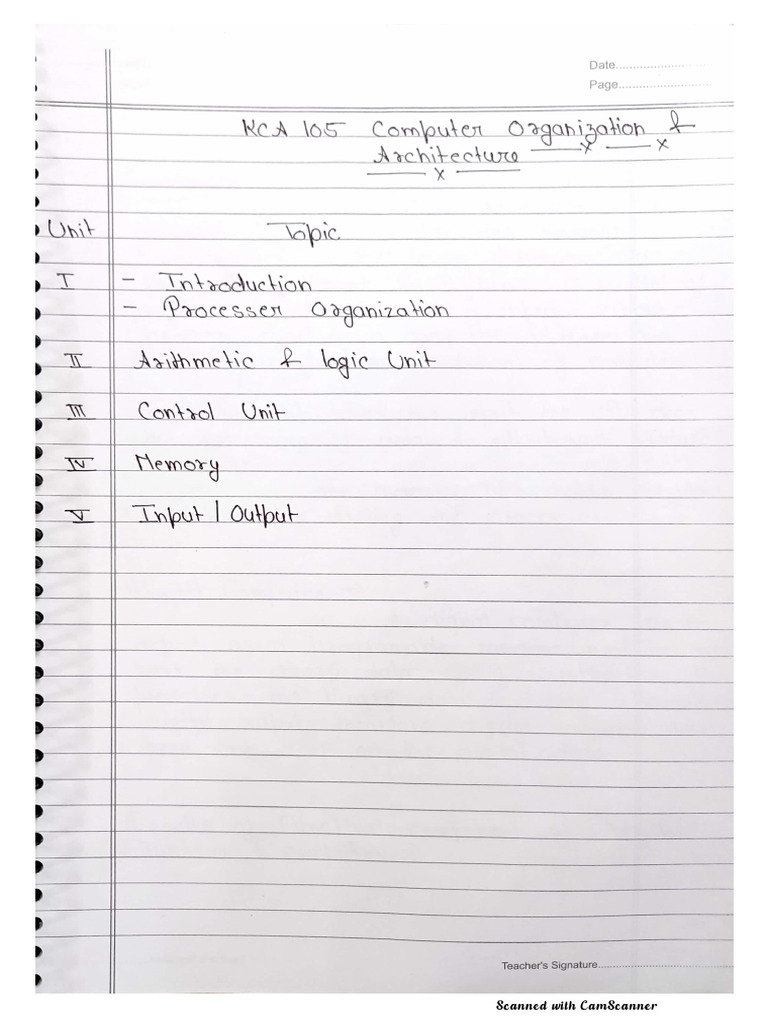 Date........................
Page........................
KCA 105 Computer Organization &
Architecture
Unit Topic
I - Introduction
- Processer Organization
II Arithmetic & logic Unit
III Control Unit
IV Memory
V Input / Output
Teacher's Signature........................
Scanned with CamScanner